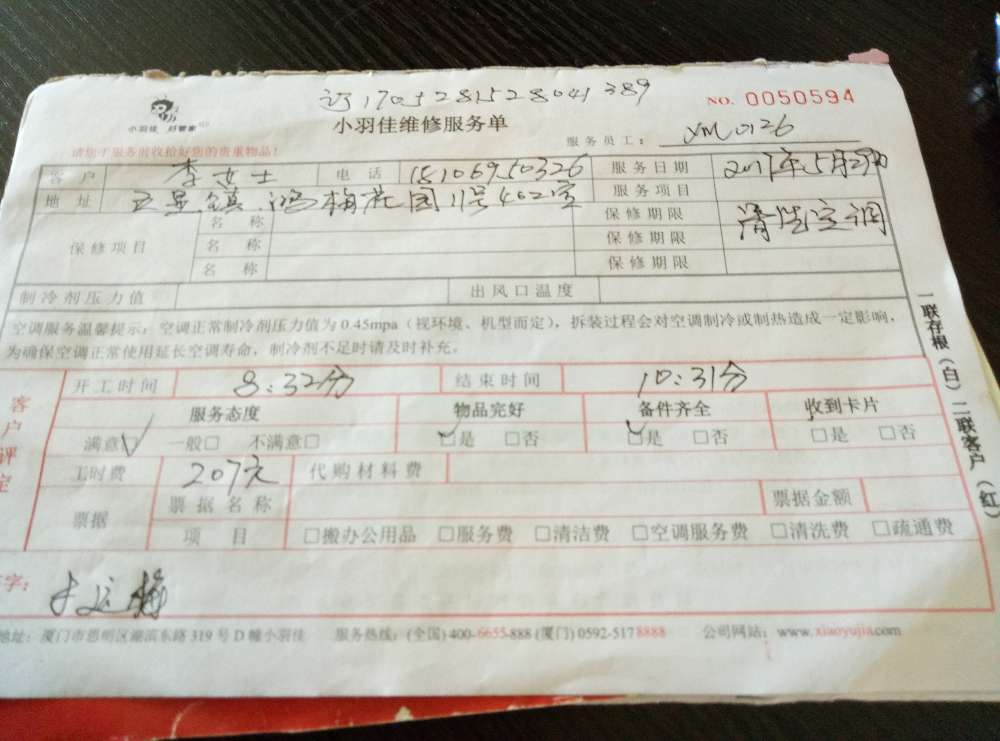 订170528152804389
NO. 0050594
小羽佳 好管家
小羽佳维修服务单
服务员工: XM0126
请您于服务前收拾好您的贵重物品!
客户 李女士 电话 18106950326 服务日期 2017年5月29日
地址 鸿梅花园11号402室 服务项目 清洁空调
保修项目 名称 保修期限
名称 保修期限
名称 保修期限
制冷剂压力值 出风口温度
空调服务温馨提示:空调正常制冷剂压力值为0.45mpa(视环境、机型而定),拆装过程会对空调制冷或制热造成一定影响,
为确保空调正常使用延长空调寿命,制冷剂不足时请及时补充。
一联存根(白)二联客户(红)
客户评定
开工时间 8:32分 结束时间 10:31分
服务态度 物品完好 备件齐全 收到卡片
满意☑ 一般□ 不满意□ ☑是 □否 ☑是 □否 □是 □否
工时费 207元 代购材料费
票据 票据名称 票据金额
项目 □搬办公用品 □服务费 □清洁费 □空调服务费 □清洗费 □疏通费
字:
地址:厦门市思明区湖滨东路319号D幢小羽佳 服务热线:(全国)400-6655-888 (厦门)0592-5178888 公司网站:www.xiaoyujia.com